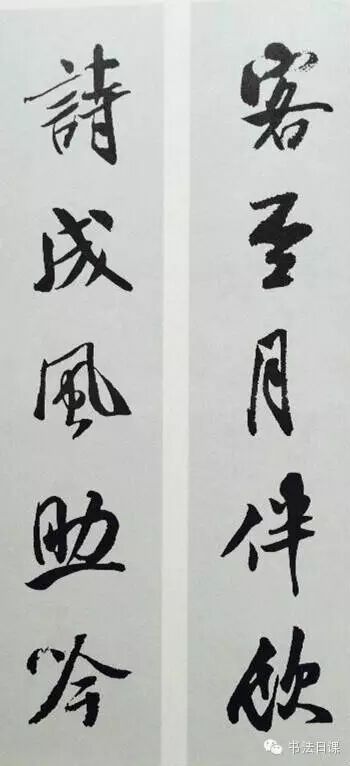 客至月伴飲
詩成風助吟
书法日课